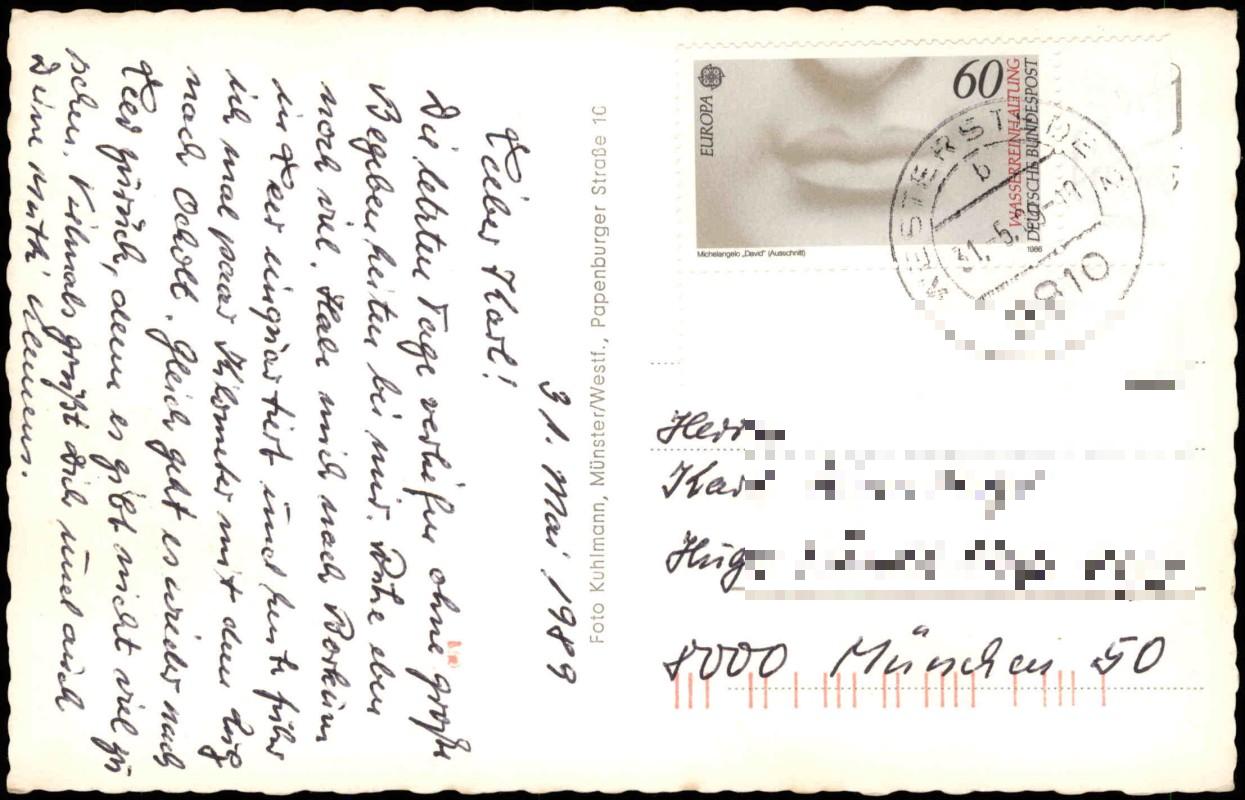 31. Mai 1989
Lieber Karl!
Die letzten Tage verliefen ohne große
Begebenheiten bei mir. Ruhe eben
noch viel. Habe mich nach Borkum
in Leer einquartiert und heute fuhr
ich mal paar Kilometer mit dem Zug
nach Ocholt. Gleich geht es wieder nach
Leer zurück, denn es gibt nicht viel zu
sehen. Vielmals grüßt Dich und auch
Deine Mutti Clemens.
Foto Kuhlmann, Münster/Westf., Papenburger Straße 10
EUROPA
60
WASSERREINHALTUNG
DEUTSCHE BUNDESPOST
Michelangelo „David" (Ausschnitt)
1986
WESTERSTEDE
b
31.-5.
2910
Herr
Kar
Hug
8000 München 50